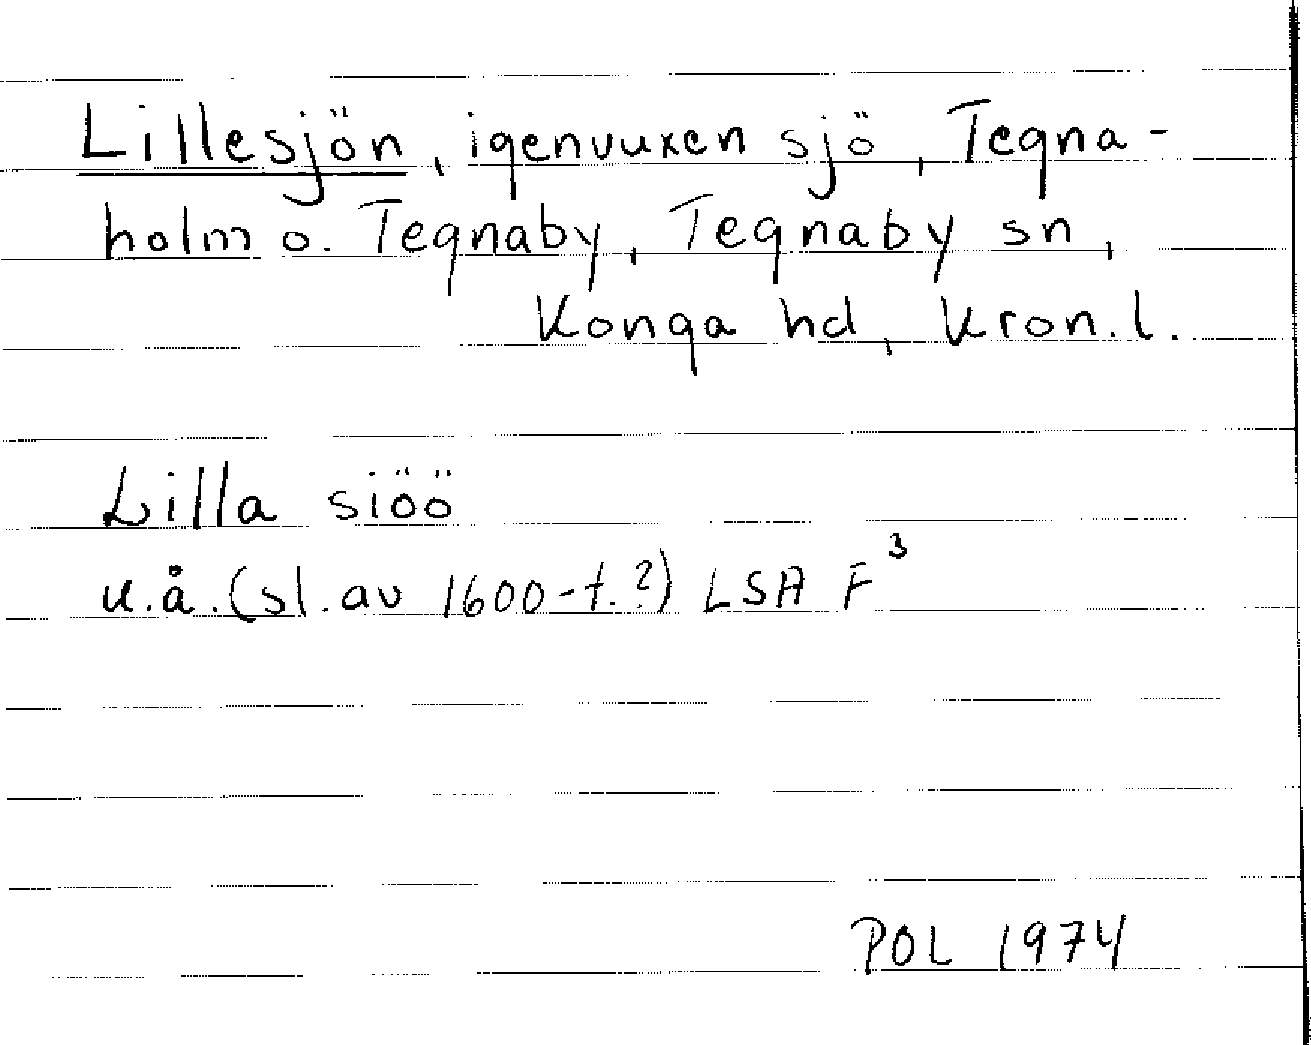 Lillesjön, igenvuxen sjö, Tegna-
holm o. Tegnaby, Tegnaby sn,
Konga hd, Kron.l.
Lilla siöö
u.å. (sl. av 1600-t.?) LSA F³
POL 1974